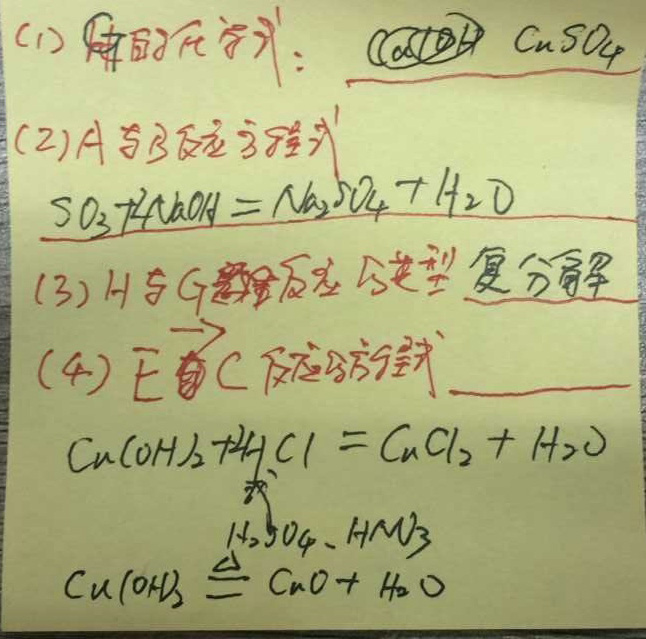 (1) 的化学式: CuSO4
(2) A与B反应方程式
SO3+2NaOH=Na2SO4+H2O
(3) H与G反应的类型 复分解
(4) E→C反应的方程式
Cu(OH)2+2HCl=CuCl2+H2O
或
H2SO4、HNO3
Cu(OH)2 ≜ CuO+H2O